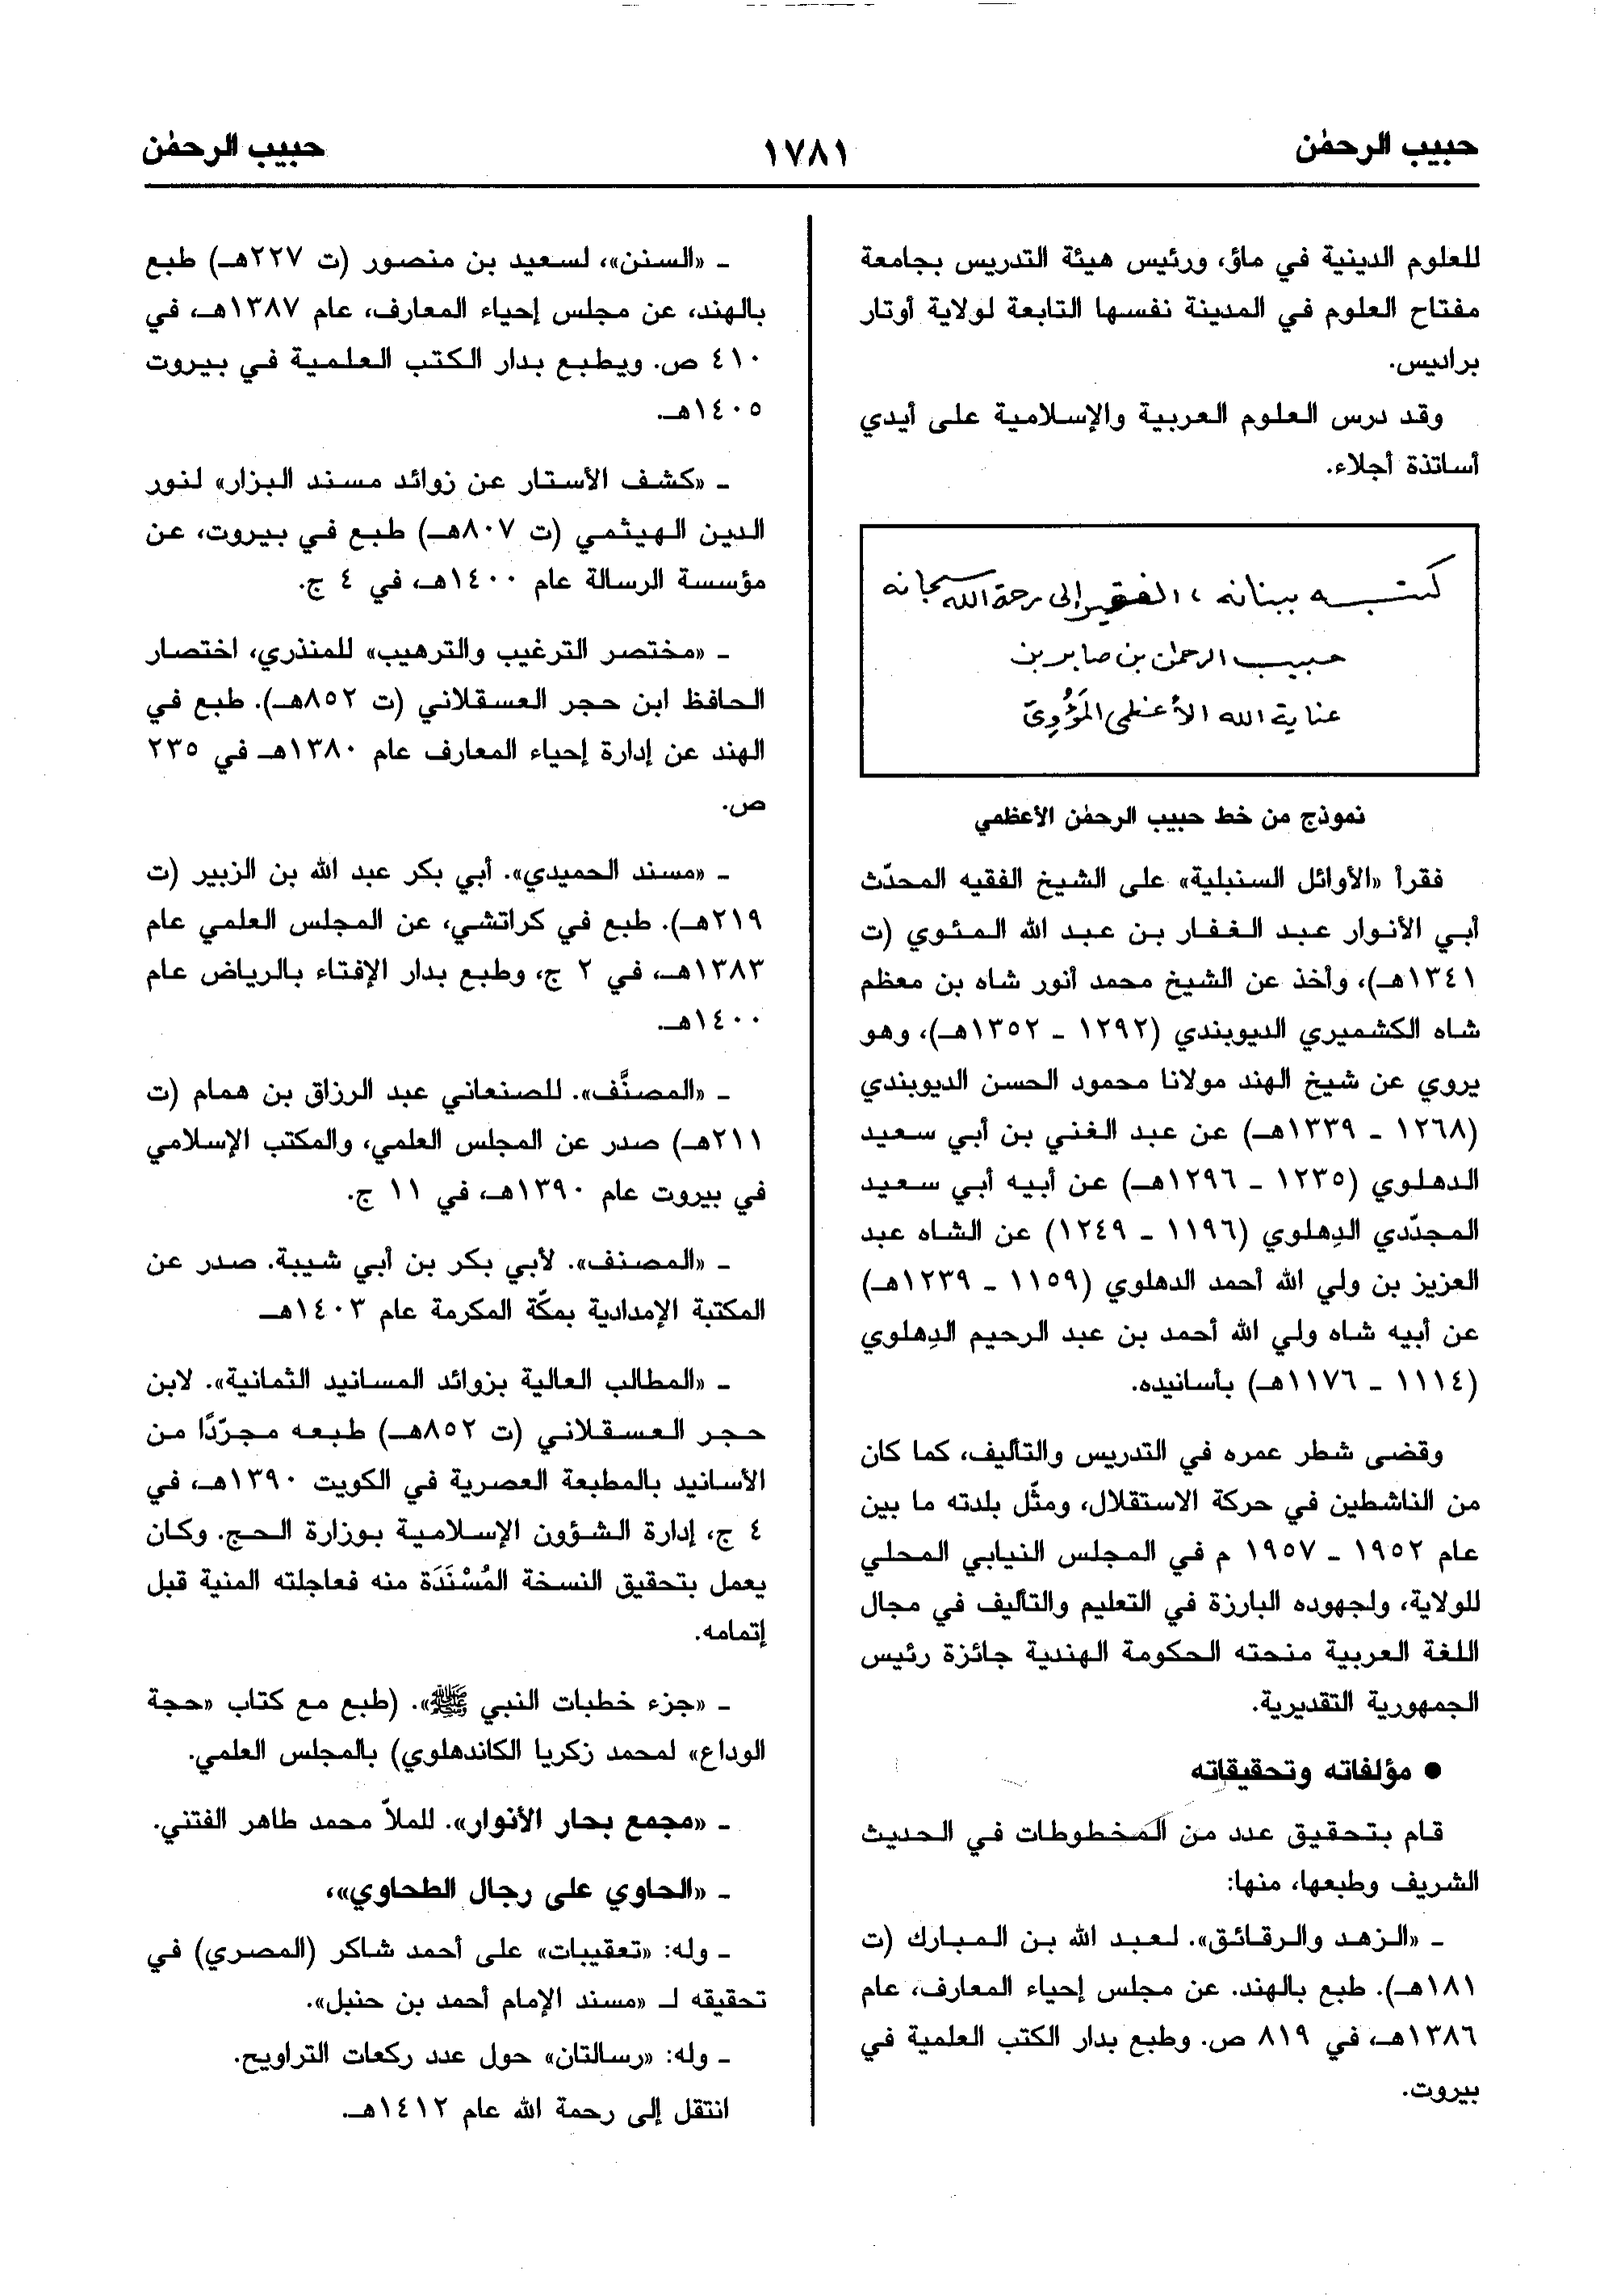 حبيب الرحمٰن
١٧٨١
حبيب الرحمٰن
للعلوم الدينية في ماؤ، ورئيس هيئة التدريس بجامعة
مفتاح العلوم في المدينة نفسها التابعة لولاية أوتار
براديس.
وقد درس العلوم العربية والإسلامية على أيدي
أساتذة أجلاء.
كتبه ببنانه، الفقير إلى رحمة الله سبحانه
حبيب الرحمٰن بن صابر بن
عناية الله الأعظمي المَؤُوِيّ
نموذج من خط حبيب الرحمٰن الأعظمي
فقرأ «الأوائل السنبلية» على الشيخ الفقيه المحدّث
أبي الأنوار عبد الغفار بن عبد الله المئوي (ت
١٣٤١هـ)، وأخذ عن الشيخ محمد أنور شاه بن معظم
شاه الكشميري الديوبندي (١٢٩٢ - ١٣٥٢هـ)، وهو
يروي عن شيخ الهند مولانا محمود الحسن الديوبندي
(١٢٦٨ - ١٣٣٩هـ) عن عبد الغني بن أبي سعيد
الدهلوي (١٢٣٥ - ١٢٩٦هـ) عن أبيه أبي سعيد
المجدّدي الدِهلوي (١١٩٦ - ١٢٤٩) عن الشاه عبد
العزيز بن ولي الله أحمد الدهلوي (١١٥٩ - ١٢٣٩هـ)
عن أبيه شاه ولي الله أحمد بن عبد الرحيم الدِهلوي
(١١١٤ - ١١٧٦هـ) بأسانيده.
وقضى شطر عمره في التدريس والتأليف، كما كان
من الناشطين في حركة الاستقلال، ومثّل بلدته ما بين
عام ١٩٥٢ - ١٩٥٧ م في المجلس النيابي المحلي
للولاية، ولجهوده البارزة في التعليم والتأليف في مجال
اللغة العربية منحته الحكومة الهندية جائزة رئيس
الجمهورية التقديرية.
● مؤلفاته وتحقيقاته
قام بتحقيق عدد من المخطوطات في الحديث
الشريف وطبعها، منها:
- «الزهد والرقائق». لعبد الله بن المبارك (ت
١٨١هـ). طبع بالهند. عن مجلس إحياء المعارف، عام
١٣٨٦هـ، في ٨١٩ ص. وطبع بدار الكتب العلمية في
بيروت.
- «السنن»، لسعيد بن منصور (ت ٢٢٧هـ) طبع
بالهند، عن مجلس إحياء المعارف، عام ١٣٨٧هـ، في
٤١٠ ص. ويطبع بدار الكتب العلمية في بيروت
١٤٠٥هـ.
- «كشف الأستار عن زوائد مسند البزار» لنور
الدين الهيثمي (ت ٨٠٧هـ) طبع في بيروت، عن
مؤسسة الرسالة عام ١٤٠٠هـ، في ٤ ج.
- «مختصر الترغيب والترهيب» للمنذري، اختصار
الحافظ ابن حجر العسقلاني (ت ٨٥٢هـ). طبع في
الهند عن إدارة إحياء المعارف عام ١٣٨٠هـ في ٢٣٥
ص.
- «مسند الحميدي». أبي بكر عبد الله بن الزبير (ت
٢١٩هـ). طبع في كراتشي، عن المجلس العلمي عام
١٣٨٣هـ، في ٢ ج، وطبع بدار الإفتاء بالرياض عام
١٤٠٠هـ.
- «المصنَّف». للصنعاني عبد الرزاق بن همام (ت
٢١١هـ) صدر عن المجلس العلمي، والمكتب الإسلامي
في بيروت عام ١٣٩٠هـ، في ١١ ج.
- «المصنف». لأبي بكر بن أبي شيبة. صدر عن
المكتبة الإمدادية بمكّة المكرمة عام ١٤٠٣هـ
- «المطالب العالية بزوائد المسانيد الثمانية». لابن
حجر العسقلاني (ت ٨٥٢هـ) طبعه مجرّدًا من
الأسانيد بالمطبعة العصرية في الكويت ١٣٩٠هـ، في
٤ ج، إدارة الشؤون الإسلامية بوزارة الحج. وكان
يعمل بتحقيق النسخة المُسْنَدَة منه فعاجلته المنية قبل
إتمامه.
- «جزء خطبات النبي ﷺ». (طبع مع كتاب «حجة
الوداع» لمحمد زكريا الكاندهلوي) بالمجلس العلمي.
- «مجمع بحار الأنوار». للملاّ محمد طاهر الفتني.
- «الحاوي على رجال الطحاوي»،
- وله: «تعقيبات» على أحمد شاكر (المصري) في
تحقيقه لـ «مسند الإمام أحمد بن حنبل».
- وله: «رسالتان» حول عدد ركعات التراويح.
انتقل إلى رحمة الله عام ١٤١٢هـ.